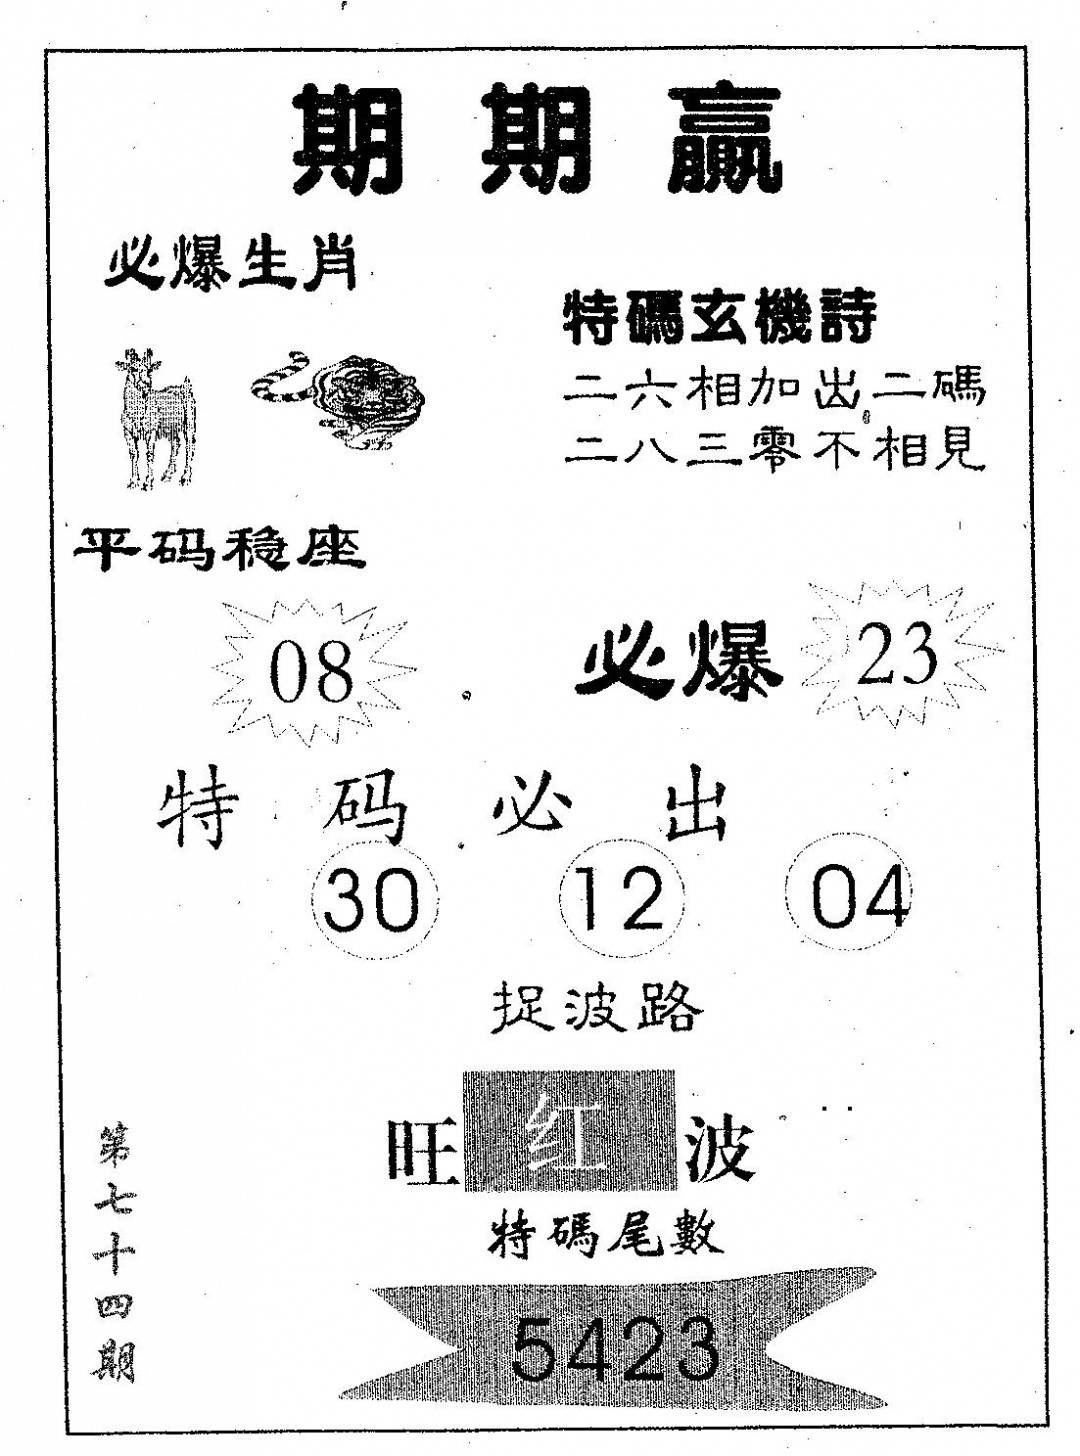 期期贏
必爆生肖
特碼玄機詩
二六相加出二碼
二八三零不相見
平码稳座
08
必爆 23
特码必出
30 12 04
捉波路
旺红波
特碼尾數
5423
第七十四期